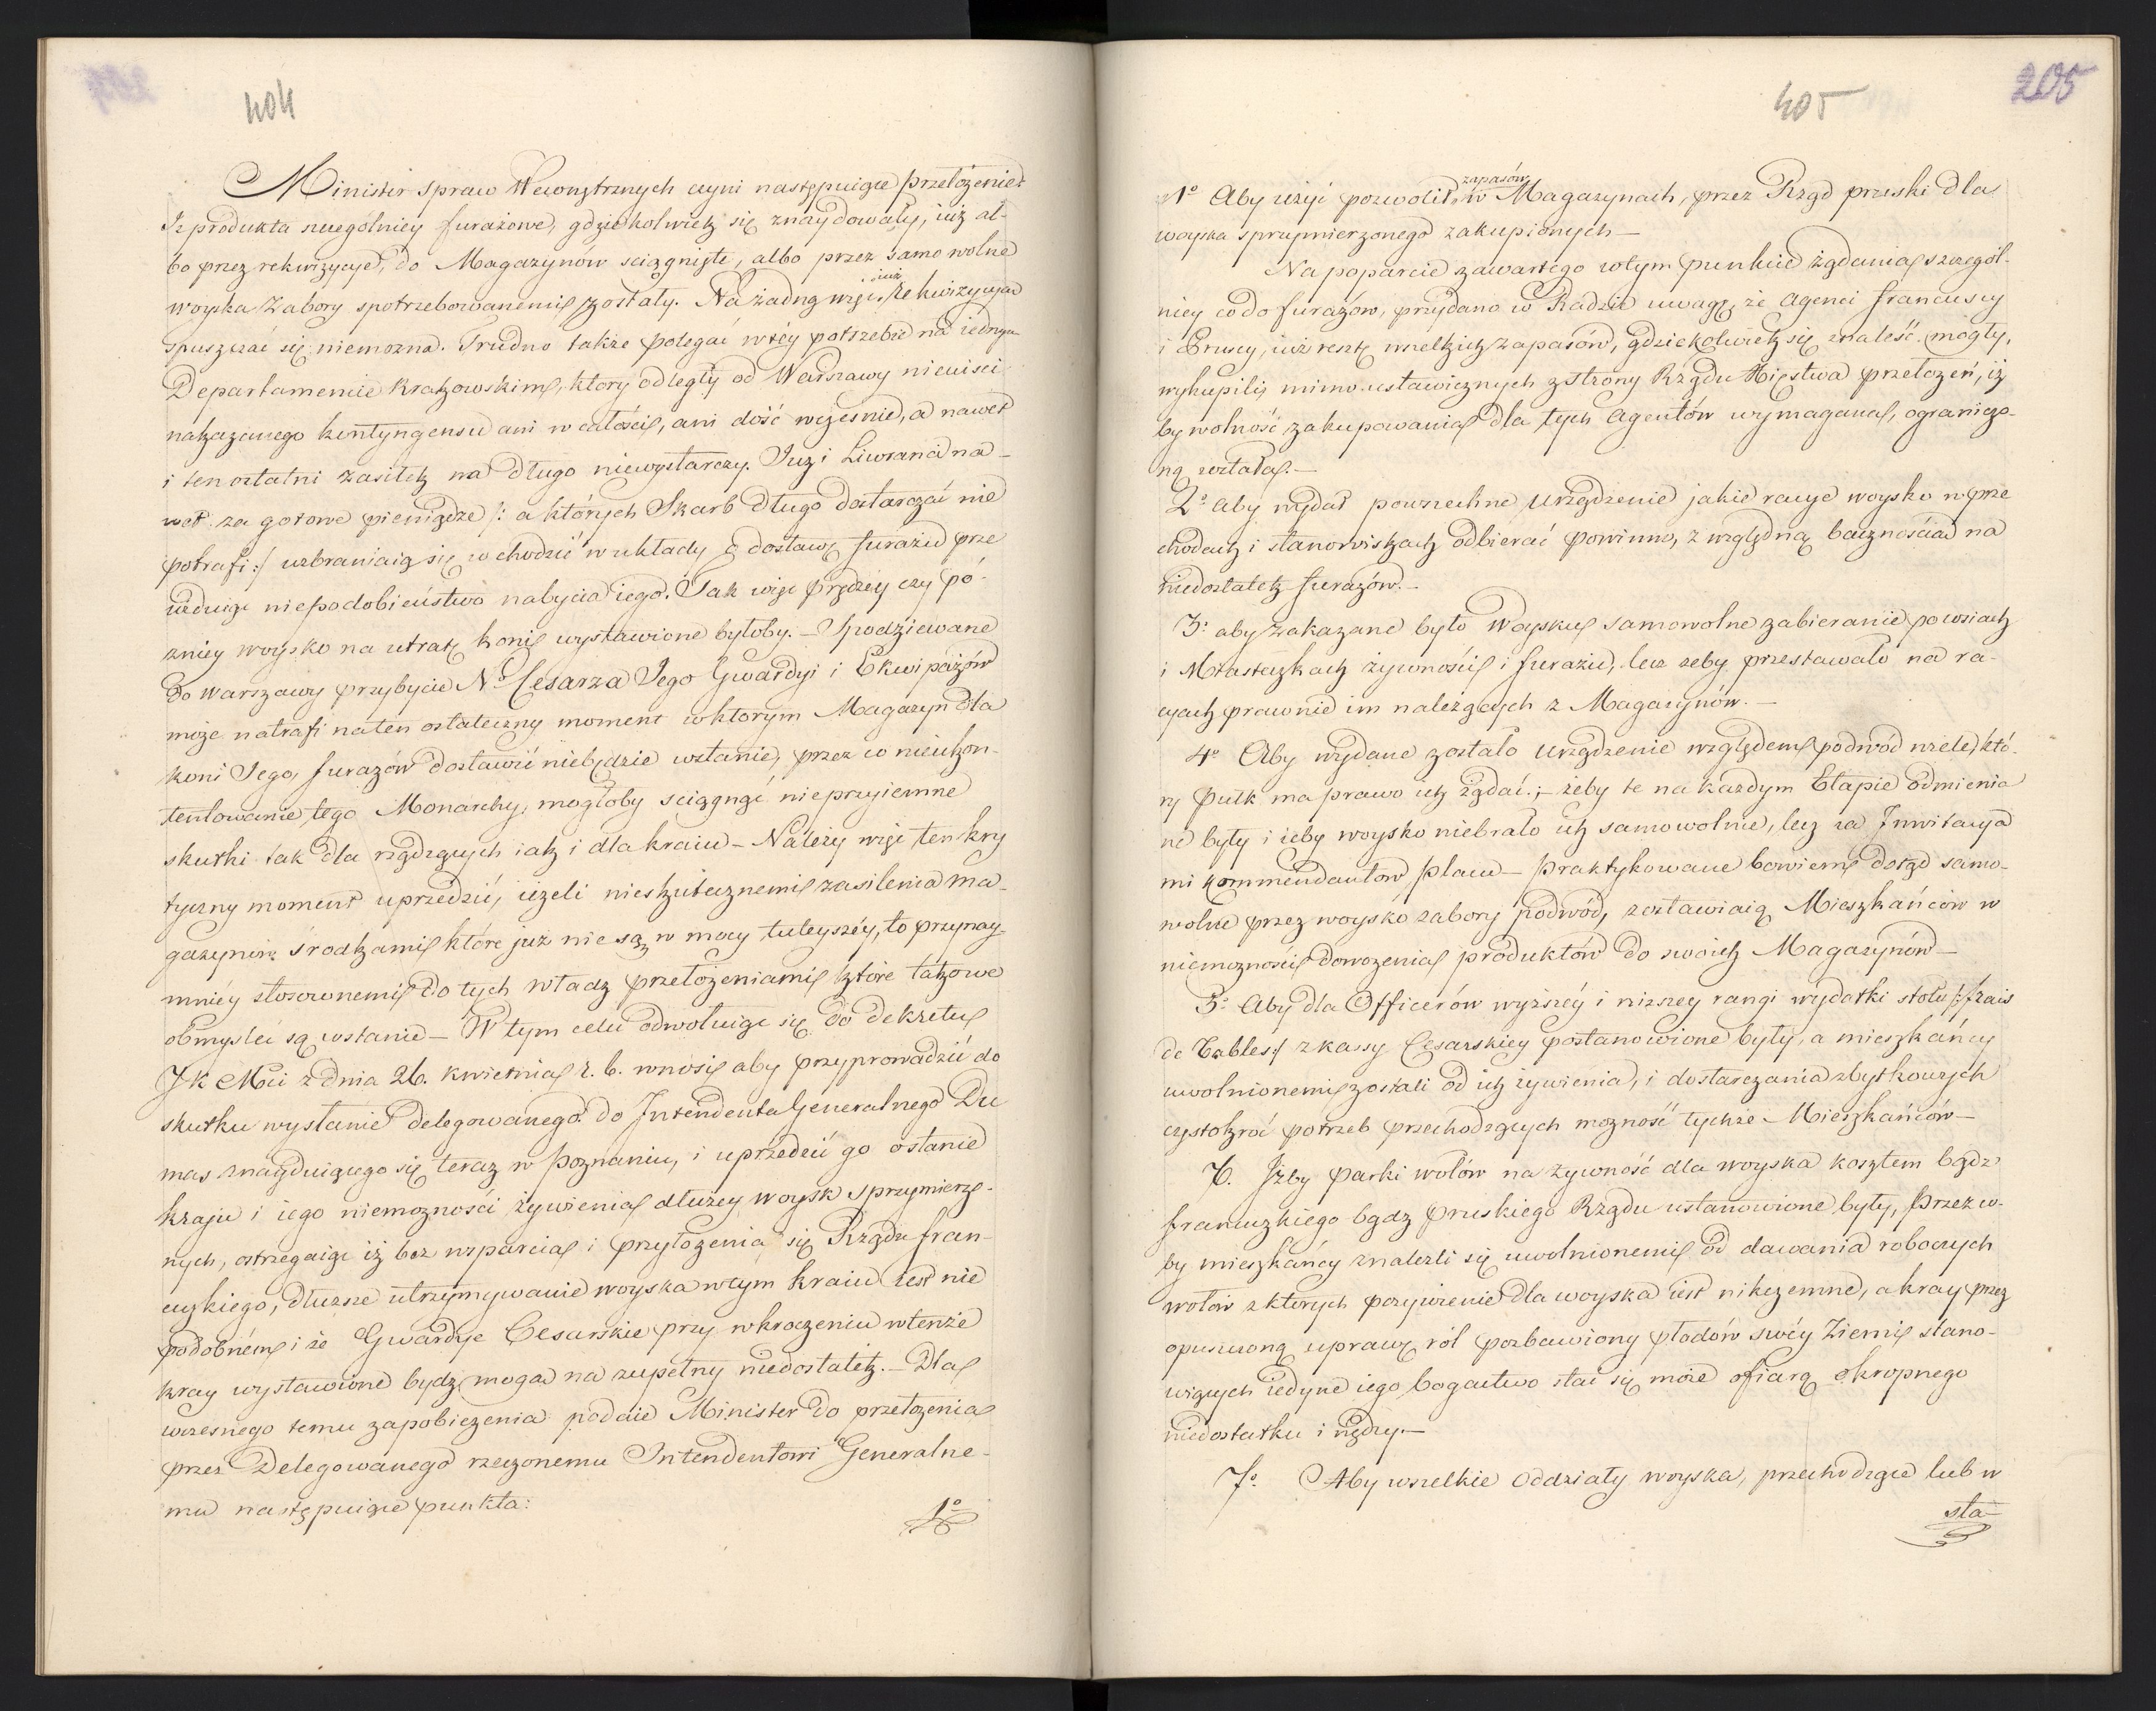 404
Minister spraw Wewnątrznych czyni następuiące przełożenie:
Iż produkta szczególniey furażowe, gdziekolwiek się znaydowały, iuż al-
bo przez rekwizycye, do Magazynów sciągnięte, albo przez samowolne
woyska Zabory spotrzebowanemi zostały. Na żadną więc iuż Rekwizycyą
spuszczać się niemożna. Trudno także polegać w téy potrzebie na iednym
Departamencie Krakowskim, który odległy od Warszawy nieuiści
nakazanego kontyngensu ani w całości, ani dość wcześnie, a nawet
i ten ostatni zasiłek na długo niewystarczy. Iuż i Liwrana na-
wet za gotowe pieniądze /: a których Skarb długo dostarczać nie
potrafi :/ wzbraniaią się wchodzić w układy o dostawę furażu prze
widuiąc niepodobieństwo nabycia iego. Tak więc prędzey czy pó-
zniey woysko na utratę koni wystawione byłoby. – Spodziewane
do Warszawy przybycie No Cesarza Jego Gwardyi i Ekwipażów
może natrafi na ten ostateczny moment w którym Magazyn dla
koni Jego, furażów dostawić niebędzie wstanie, przez co nieukon-
tentowanie tego Monarchy, mogłoby sciągnąć nieprzyiemne
skutki tak dla rządzących iak i dla kraiu – Należy więc ten kry
tyczny moment uprzedzić, ieżeli nieskutecznemi zasilenia ma-
gazynów środkami które już nie są w mocy tuteyszéy, to przynay-
mniéy stosownemi do tych władz przełożeniami które takowe
obmyslić są wstanie – W tym celu odwołuiąc się do dekretu
JK Mci z dnia 26. kwietnia r. b. wnosi aby przyprowadzić do
skutku wysłanie delegowanego do Intendenta Generalnego Du
mas znayduiącego się teraz w Poznaniu, i uprzedzić go o stanie
kraju i iego niemożności żywienia dłużey woysk sprzymierzo-
nych, ostrzegaiąc iż bez wsparcia i przyłożenia się Rządu fran-
cuzkiego, dłuższe utrzymywanie woyska w tym kraiu iest nie
podobném i że Gwardye Cesarskie przy wkroczeniu wtenże
kray wystawione bydź moga na zupełny niedostatek. – Dla
wczesnego temu zapobieżenia podaie Minister do przełożenia
przez Delegowanego rzeczonemu Intendentowi Generalne-
mu następuiące punkta:
1o
405
205
1o Aby użyć pozwolił zapasów w Magazynach, przez Rząd pruski dla
woyska sprzymierzonego zakupionych –
Na poparcie zawartego w tym punkcie żądania szczegól-
niey co do furażów, przydano w Radzie uwagę, że agenci francuscy
i Pruscy, iuż resztę wszelkich zapasów, gdziekolwiek się znaleść mogły,
wykupili, mimo ustawicznych z strony Rządu Xięstwa przełożeń, iż
by wolność zakupowania dla tych Agentów wymagana, ograniczo-
ną została. –
2o aby wydał powszechne urządzenie jakie racye woysko w prze
chodach i stanowiskach odbierać powinno, z względną bacznościa na
niedostatek furażów. –
3o aby zakazane było Woysku samowolne zabieranie po wsiach
i Miasteczkach żywności i furażu, lecz żeby przestawało na ra-
cyach prawnie im należących z Magazynów. –
4o Aby wydane zostało urządzenie względem podwód wiele, któ-
ry Pułk ma prawo ich żądać; – żeby te na każdym Etapie odmienia
ne były i żeby woysko niebrało ich samowolnie, lecz za Inwitacya
mi Kommendantów placu – Praktykowane bowiem dotąd samo-
wolne przez woysko zabory podwód, zostawiaią Mieszkańców w
niemożności dowożenia produktów do swoich Magazynów –
5o Aby dla Officerów wyższéy i niższey rangi wydatki stołu /: frais
de Tables :/ z kassy Cesarskiey postanowione były, a mieszkańcy
uwolnionemi zostali od ich żywienia, i dostarczania zbytkowych
częstokroć potrzeb przechodzących możność tychże Mieszkańców –
6. Iżby parki wołów na żywność dla woyska kosztem bądz
francuzkiego bądz pruskiego Rządu ustanowione były, Przez co-
by mieszkańcy znaleźli się uwolnionemi od dawania roboczych
wołów z których pożywienie dla woyska iest nikczemne, a kray przez
opuszczoną uprawę ról pozbawiony płodów swéy Ziemi stano-
wiących iedyne iego bogactwo stać się może ofiarą okropnego
niedostatku i nędzy. –
7o Aby wszelkie oddziały woyska, przechodzące lub w
sta-